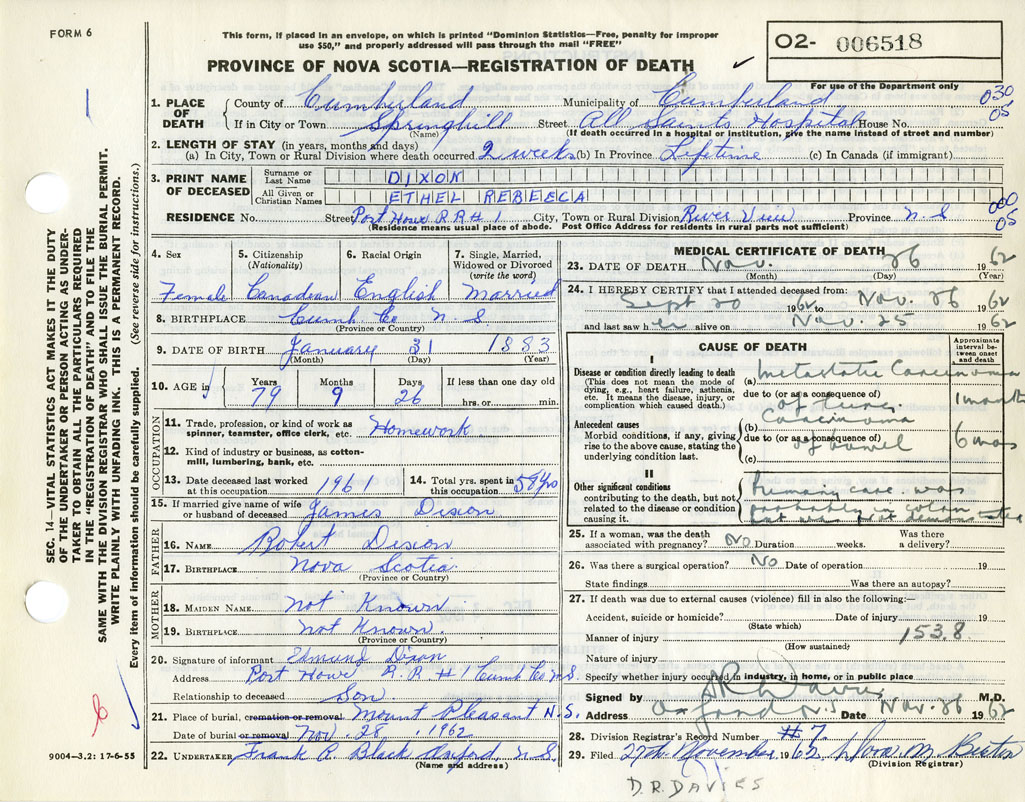 FORM 6
This form, if placed in an envelope, on which is printed "Dominion Statistics—Free, penalty for improper
use $50," and properly addressed will pass through the mail "FREE"
O2- 006518
PROVINCE OF NOVA SCOTIA—REGISTRATION OF DEATH
For use of the Department only
1. PLACE OF DEATH { County of Cumberland Municipality of Cumberland 030
If in City or Town Springhill Street All Saints Hospital House No. 05
(Name) (If death occurred in a Hospital or Institution, give name instead of street and number)
2. LENGTH OF STAY (in years, months and days)
(a) In City, Town or Rural Division where death occurred 2 weeks (b) In Province Lifetime (c) In Canada (if immigrant)
3. PRINT NAME OF DECEASED { Surname or Last Name DIXON
All Given or Christian Names ETHEL REBECCA
000
RESIDENCE No. Street Port Howe R R # 1 City, Town or Rural Division River View Province N. S 05
(Residence means usual place of abode. Post Office Address for residents in rural parts not sufficient)
4. Sex 5. Citizenship (Nationality) 6. Racial Origin 7. Single, Married, Widowed or Divorced (write the word)
Female Canadian English Married
8. BIRTHPLACE Cumb Co N. S
(Province or Country)
9. DATE OF BIRTH January 31 1883
(Month) (Day) (Year)
10. AGE in Years Months Days If less than one day old
79 9 26 hrs. or min.
OCCUPATION
11. Trade, profession, or kind of work as spinner, teamster, office clerk, etc. Homework
12. Kind of industry or business, as cotton-mill, lumbering, bank, etc.
13. Date deceased last worked at this occupation 1961 14. Total yrs. spent in this occupation 59 yrs
15. If married give name of wife or husband of deceased James Dixon
FATHER
16. NAME Robert Dixon
17. BIRTHPLACE Nova Scotia
(Province or Country)
MOTHER
18. MAIDEN NAME Not Known
19. BIRTHPLACE Not Known.
(Province or Country)
20. Signature of informant Edmund Dixon
Address Port Howe R. R. #1 Cumb Co N.S.
Relationship to deceased Son.
21. Place of burial, cremation or removal Mount Pleasant N.S.
Date of burial or removal Nov. 28, 1962
22. UNDERTAKER Frank A. Black Oxford, N.S.
(Name and address)
9004—3.2: 17-6-55
MEDICAL CERTIFICATE OF DEATH
23. DATE OF DEATH Nov. 26 1962
(Month) (Day) (Year)
24. I HEREBY CERTIFY that I attended deceased from:
Sept 20 1962 to Nov. 26 1962
and last saw her alive on Nov. 25 1962
CAUSE OF DEATH
Approximate interval between onset and death
I
Disease or condition directly leading to death
(This does not mean the mode of dying, e.g., heart failure, asthenia, etc. It means the disease, injury, or complication which caused death.)
(a) Metastatic Carcinoma
due to (or as a consequence of) of liver. 1 month
Antecedent causes
Morbid conditions, if any, giving rise to the above cause, stating the underlying condition last.
(b) Carcinoma
due to (or as a consequence of) of bowel 6 mos
(c)
II
Other significant conditions contributing to the death, but not related to the disease or condition causing it.
Primary case was
probably in colon
but was not demonstrated
25. If a woman, was the death associated with pregnancy? No Duration weeks. Was there a delivery?
26. Was there a surgical operation? No Date of operation 19
State findings Was there an autopsy?
27. If death was due to external causes (violence) fill in also the following:—
Accident, suicide or homicide? Date of injury 19
(State which)
Manner of injury 153.8
(How sustained)
Nature of injury
Specify whether injury occurred in industry, in home, or in public place
Signed by D R Davies M.D.
Address Oxford N.S Date Nov. 26 1962
28. Division Registrar's Record Number #7.
29. Filed 27th November, 1962
(Division Registrar)
D.R. DAVIES
SEC. 14—VITAL STATISTICS ACT MAKES IT THE DUTY
OF THE UNDERTAKER OR PERSON ACTING AS UNDER-
TAKER TO OBTAIN ALL THE PARTICULARS REQUIRED
IN THE "REGISTRATION OF DEATH" AND TO FILE THE
SAME WITH THE DIVISION REGISTRAR WHO SHALL ISSUE THE BURIAL PERMIT.
WRITE PLAINLY WITH UNFADING INK. THIS IS A PERMANENT RECORD.
Every item of information should be carefully supplied. (See reverse side for instructions.)